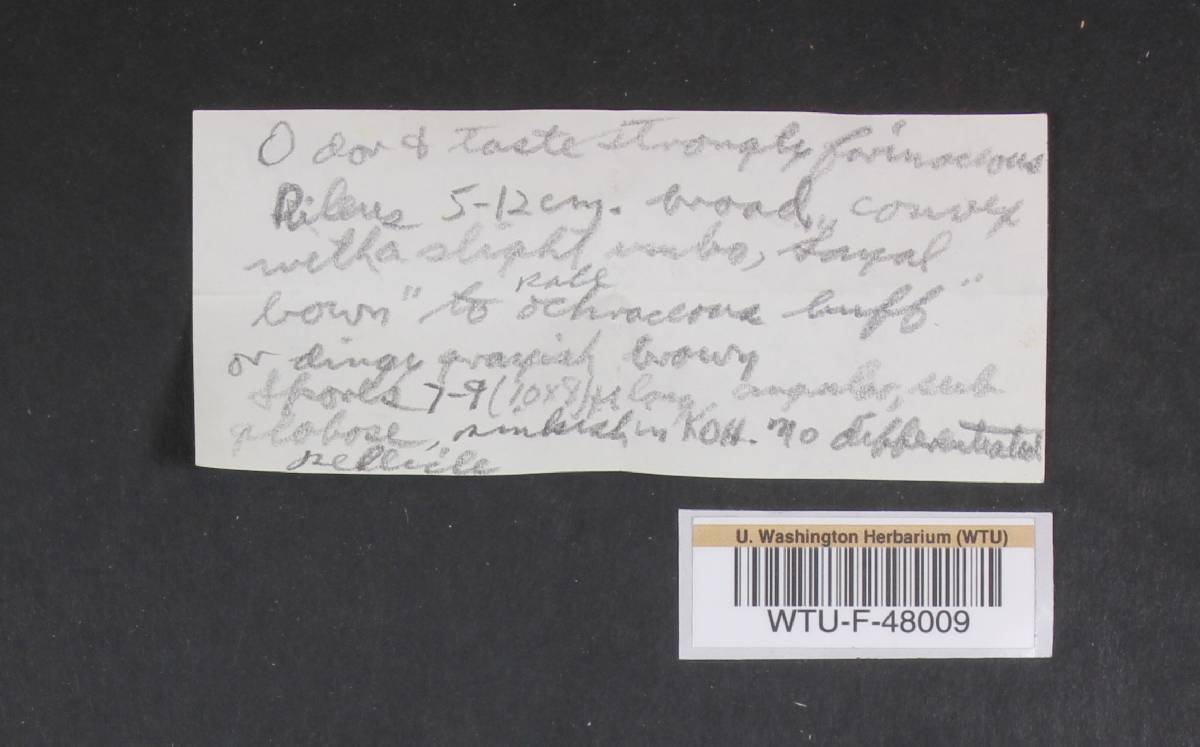 Odor & taste strongly farinaceous
Pileus 5-12 cm. broad, convex
with a slight umbo, "sayal
pale
brown" to "ochraceous buff"
or dingy grayish brown
Spores 7-9 (10x8) µ long angular, sub
globose, pinkish in KOH. No differentiated
pellicle
U. Washington Herbarium (WTU)
WTU-F-48009